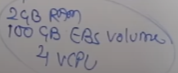 2GB RAM
100 GB EBS volume
4 vCPU